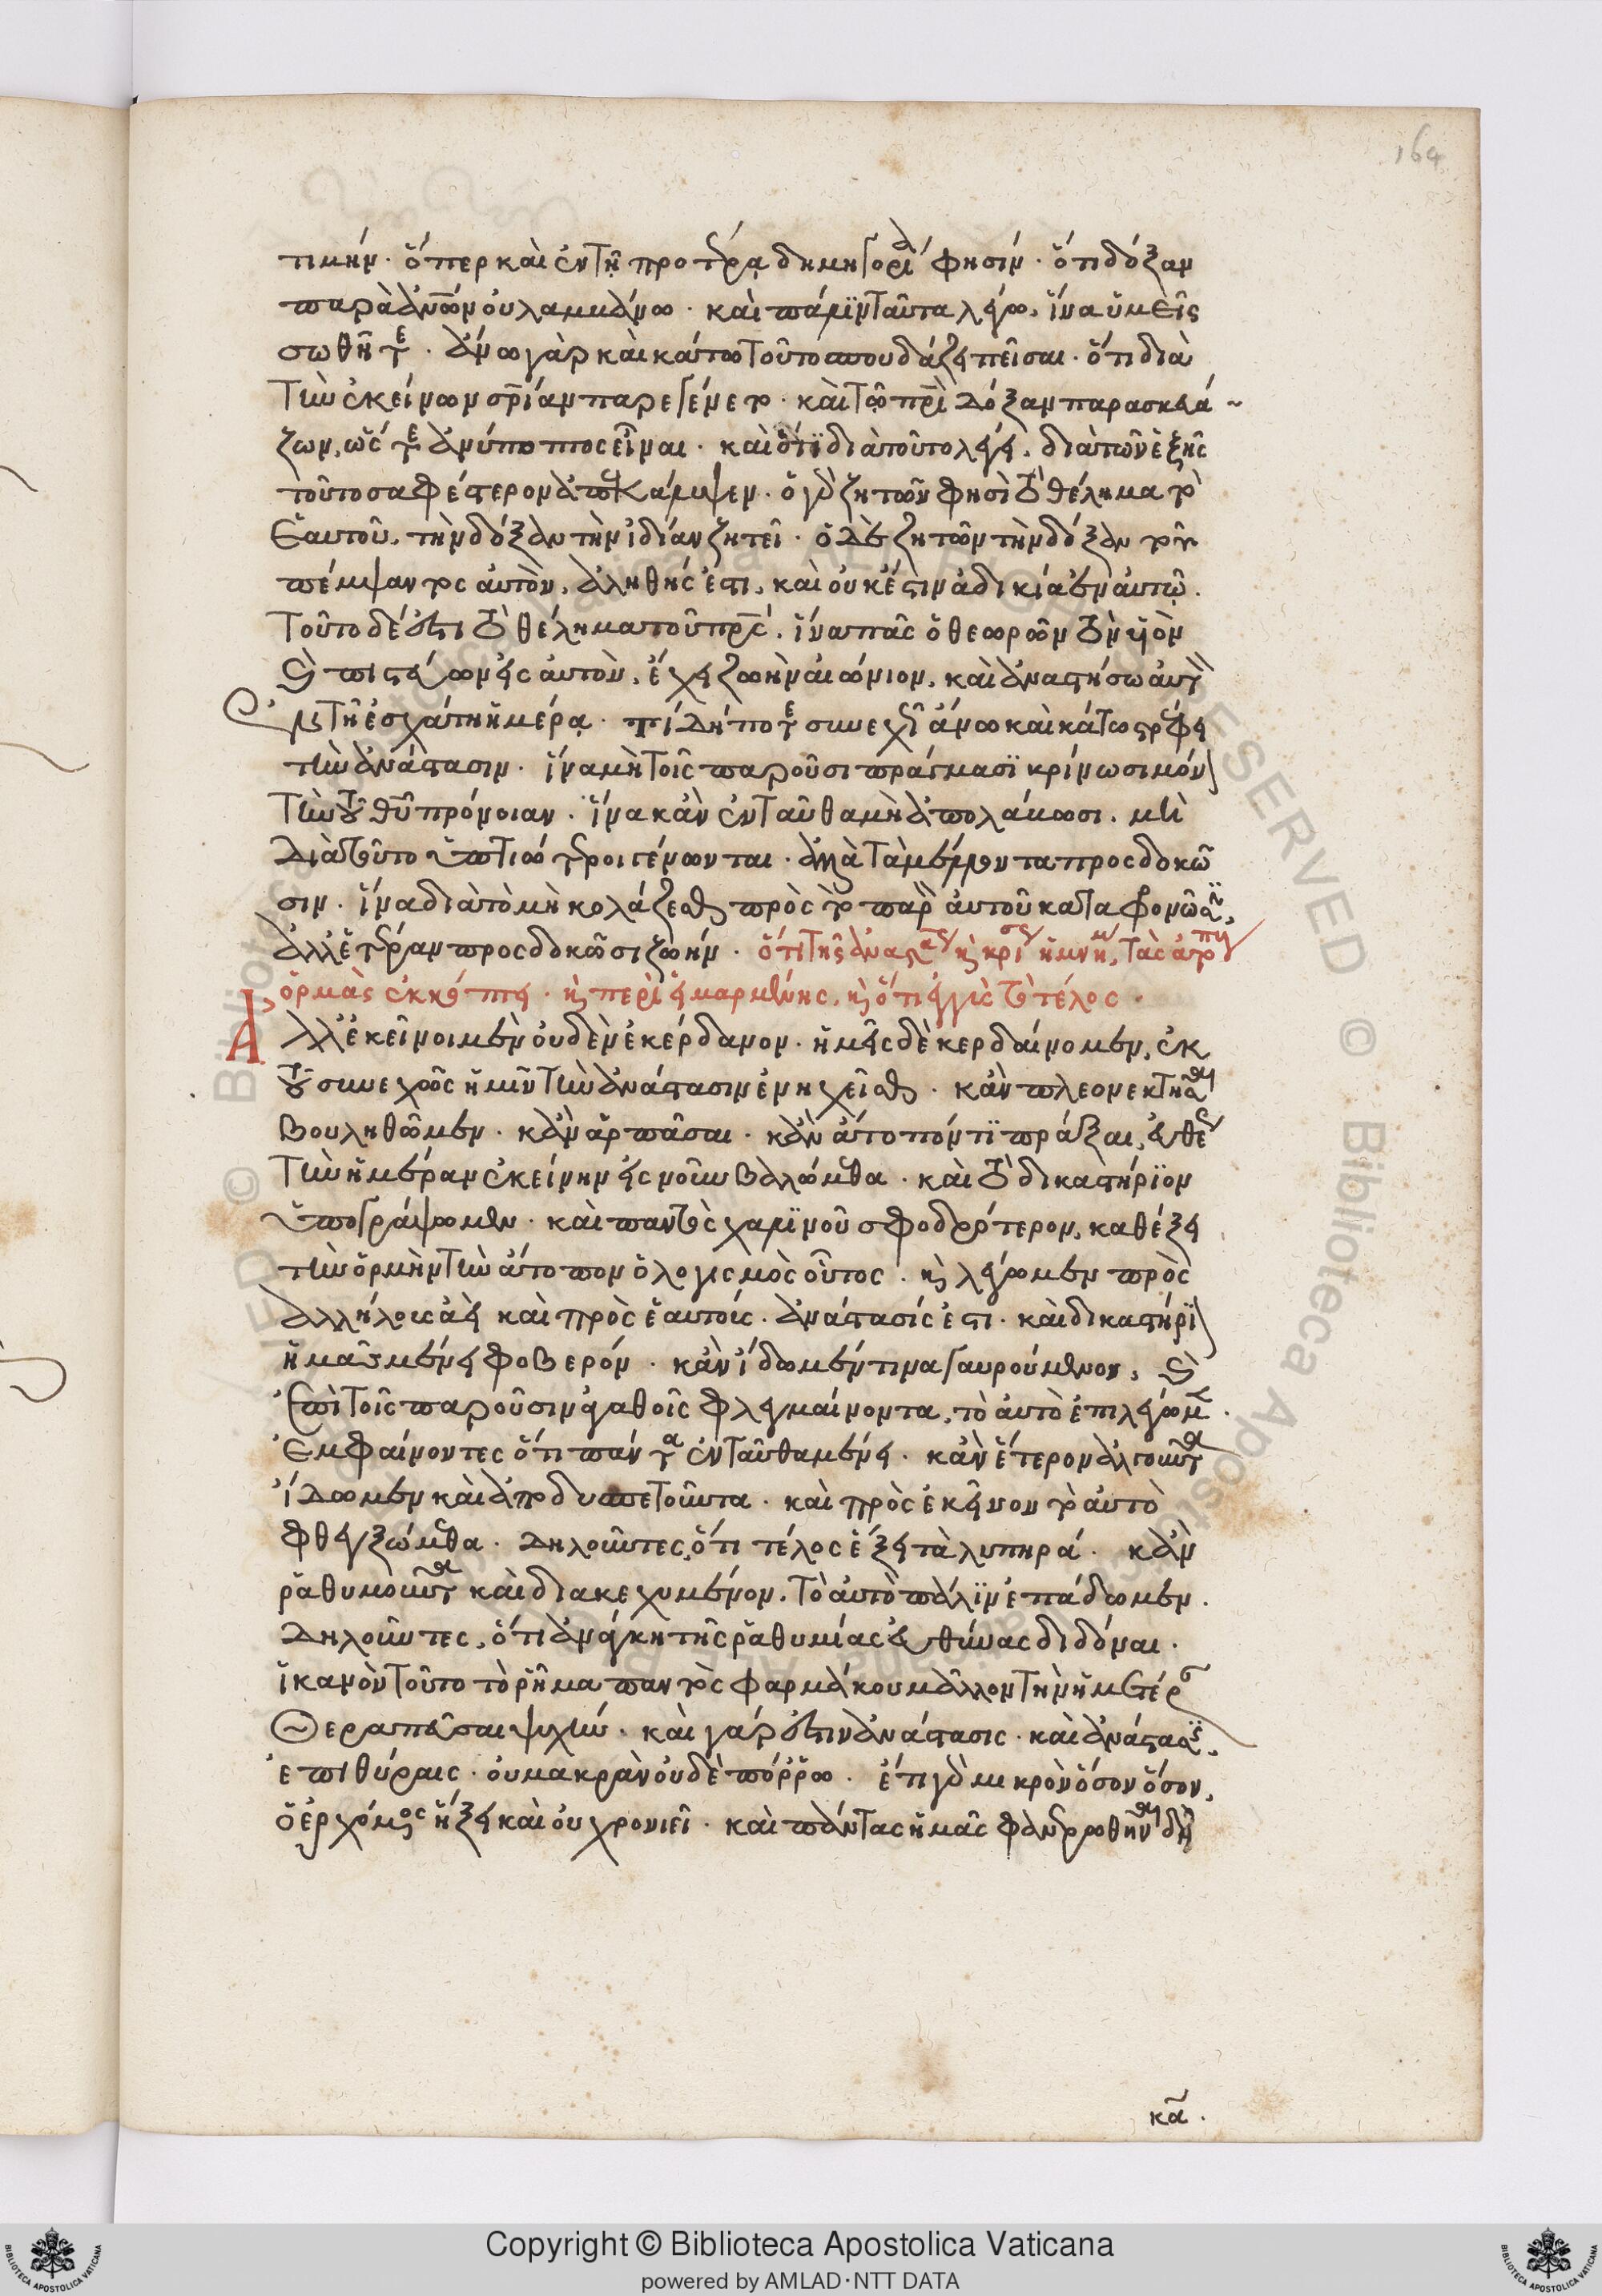 164
τιμήν· ὅπερ καὶ ἐν τῇ προτέρᾳ δημηγορίᾳ φησίν· ὅτι δόξαν
παρὰ ἀνων οὐ λαμβάνω· καὶ πάλϊν ταῦτα λέγω, ἵνα ὑμεῖς
σωθῆτε· ἄνω γὰρ καὶ κάτω τοῦτο σπουδάζει πεῖσαι· ὅτι διὰ
τὴν ἐκείνων σρίαν παρεγένετο· καὶ τῷ πρὶ δόξαν παρασκευά
ζων, ὥστε ἀνύποπτος εἶναι· καὶ ὅτϊ διὰ τοῦτο λέγει, διὰ τῶν ἑξῆς
τοῦτο σαφέστερον ἀπεκάλυψεν· ὁ γὰρ ζητῶν φησὶ τὸ θέλημα τὸ
ἑαυτοῦ, τὴν δόξαν τὴν ἰδίαν ζητεῖ· ὁ δὲ ζητῶν τὴν δόξαν τοῦ
πέμψαντος αὐτὸν, ἀληθής ἐστι, καὶ οὐκ ἔστιν ἀδικία ἐν αὐτῷ.
Τοῦτο δέ ἐστι τὸ θέλημα τοῦ πρς, ἵνα πᾶς ὁ θεωρῶν τὸν υἱὸν
καὶ πιστεύων εἰς αὐτὸν, ἔχῃ ζωὴν αἰώνιον, καὶ ἀναστήσω αὐτὸν
ἐν τῇ ἐσχάτῃ ἡμέρᾳ· τί δήποτε συνεχῶς ἄνω καὶ κάτω στρέφει
τὴν ἀνάστασιν· ἵνα μὴ τοῖς παροῦσι πράγμασϊ κρίνωσι μόνον
τὴν τοῦ θῦ πρόνοιαν· ἵνα κἂν ἐνταῦθα μὴ ἀπολάυωσι, μὴ
διὰ τοῦτο ὕπτιώτεροι γένωνται· ἀλλὰ τὰ μέλλοντα προσδοκῶ
σιν· ἵνα διὰ τὸ μὴ κολάζεσθαι πρὸς τὸ παρὸν αὐτοῦ καταφρονῶσϊν,
ἀλλ' ἑτέραν προσδοκῶσι ζωήν· ὅτι τῆς ἀναστάσεως καὶ κρίσεως ἡ μνήμη, τὰς ἀτόπους
ὁρμὰς ἐκκόπτει· καὶ περὶ εἱμαρμένης, καὶ ὅτι ἐγγὺς τὸ τέλος·
Ἀλλ' ἐκεῖνοι μὲν οὐδὲν ἐκέρδανον· ἡμεῖς δὲ κερδαίνομεν, ἐκ
τοῦ συνεχῶς ἡμῖν τὴν ἀνάστασιν ἐνηχεῖσθαι· κἂν πλεονεκτῆσαι
βουληθῶμεν· κἂν ἁρπᾶσαι· κἂν ἄτοπόν τϊ πρᾶξαι, εὐθέως
τὴν ἡμέραν ἐκείνην εἰς νοῦν βαλώμεθα· καὶ τὸ δικαστήρϊον
ὑπογράψωμεν· καὶ παντὸς χαλϊνοῦ σφοδρότερον, καθέξει
τὴν ὁρμὴν τὴν ἄτοπον ὁ λογισμὸς οὗτος· καὶ λέγωμεν πρὸς
ἀλλήλους ἀεὶ καὶ πρὸς ἑαυτούς· ἀνάστασίς ἐστι· καὶ δικαστήρϊον
ἡμᾶς μένει φοβερόν· κἂν ἴδωμέν τινα γαυρούμενον, καὶ
ἐπὶ τοῖς παροῦσιν ἀγαθοῖς φλεγμαίνοντα, τὸ αὐτὸ ἐπιλέγωμεν.
ἐμφαίνοντες ὅτι πάντα ἐνταῦθα μένει· κἂν ἕτερον ἀλγοῦντα
ἴδωμεν καὶ ἀποδυσπετοῦντα· καὶ πρὸς ἐκεῖνον τὸ αὐτὸ
φθεγξώμεθα· δηλοῦντες, ὅτι τέλος ἕξει τὰ λυπηρά· κἂν
ῥαθυμοῦντα καὶ διακεχυμένον, τὸ αὐτὸ πάλϊν ἐπάδωμεν.
δηλοῦντες, ὅτι ἀνάγκη τῆς ῥαθυμίας εὐθύνας διδόναι.
ἱκανὸν τοῦτο τὸ ῥῆμα παντὸς φαρμάκου μᾶλλον τὴν ἡμετέραν
θεραπεῦσαι ψυχήν· καὶ γάρ ἐστιν ἀνάστασις· καὶ ἀνάστασϊς,
ἐπὶ θύραις· οὐ μακρὰν οὐδὲ πόρρω· ἔτι γὰρ μικρὸν ὅσον ὅσον,
ὁ ἐρχόμενος ἥξει καὶ οὐ χρονιεῖ· καὶ πάντας ἡμᾶς φανερωθῆναι δεῖ
κα.
Copyright © Biblioteca Apostolica Vaticana
powered by AMLAD·NTT DATA